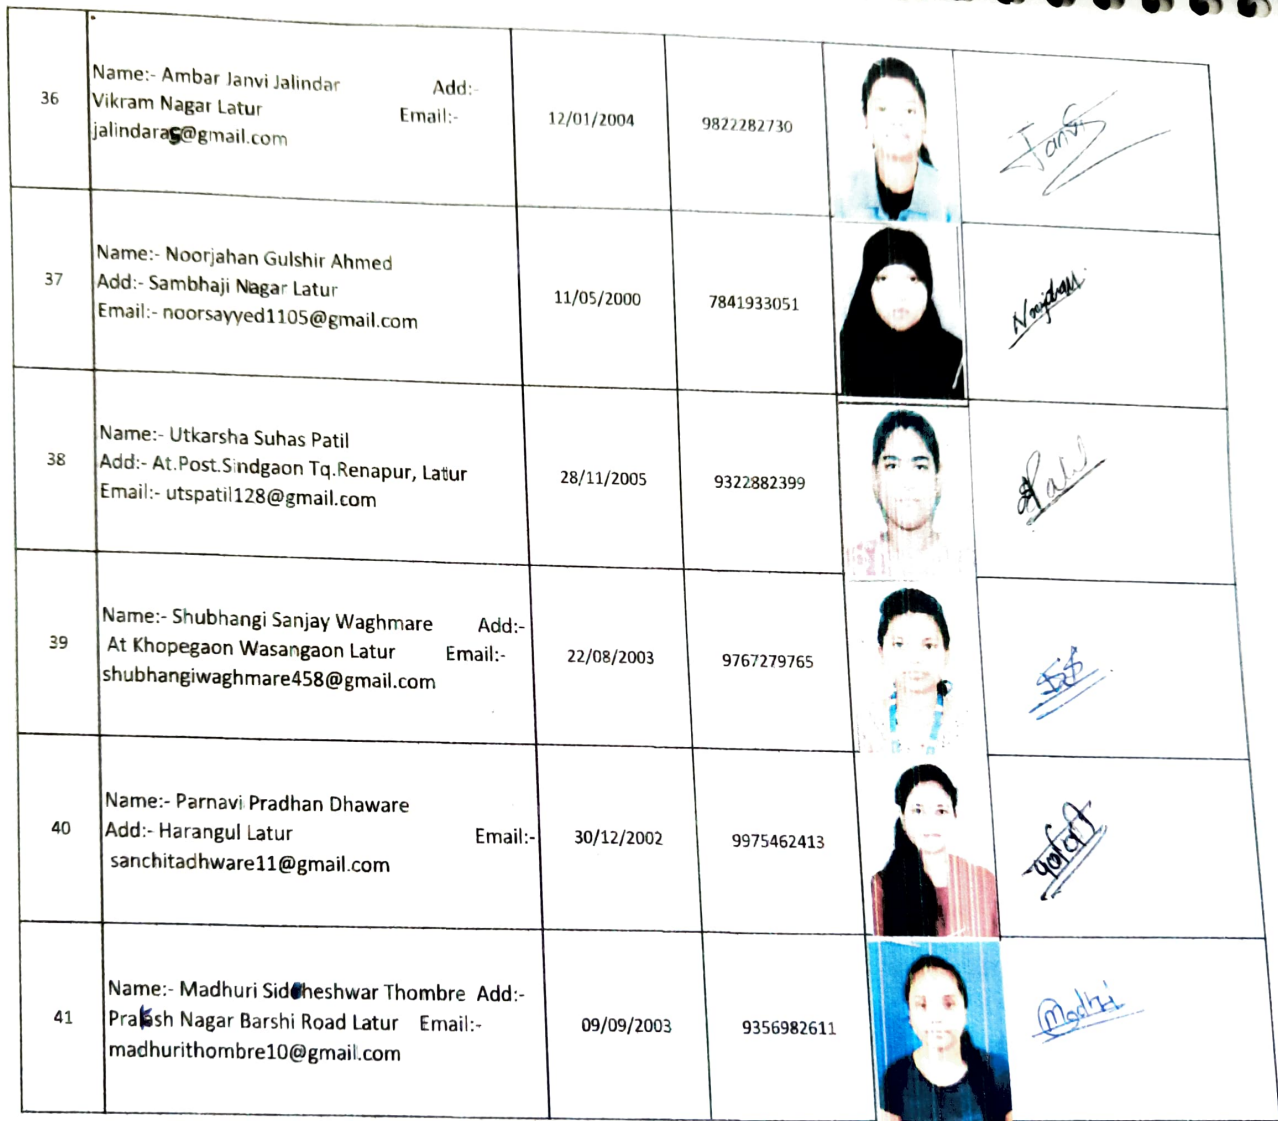 36
Name:- Ambar Janvi Jalindar Add:-
Vikram Nagar Latur Email:-
jalindaras@gmail.com
12/01/2004
9822282730
Janvi
37
Name:- Noorjahan Gulshir Ahmed
Add:- Sambhaji Nagar Latur
Email:- noorsayyed1105@gmail.com
11/05/2000
7841933051
Noorjahan
38
Name:- Utkarsha Suhas Patil
Add:- At.Post.Sindgaon Tq.Renapur, Latur
Email:- utspatil128@gmail.com
28/11/2005
9322882399
Patil
39
Name:- Shubhangi Sanjay Waghmare Add:-
At Khopegaon Wasangaon Latur Email:-
shubhangiwaghmare458@gmail.com
22/08/2003
9767279765
40
Name:- Parnavi Pradhan Dhaware
Add:- Harangul Latur Email:-
sanchitadhware11@gmail.com
30/12/2002
9975462413
41
Name:- Madhuri Siddheshwar Thombre Add:-
Prakash Nagar Barshi Road Latur Email:-
madhurithombre10@gmail.com
09/09/2003
9356982611